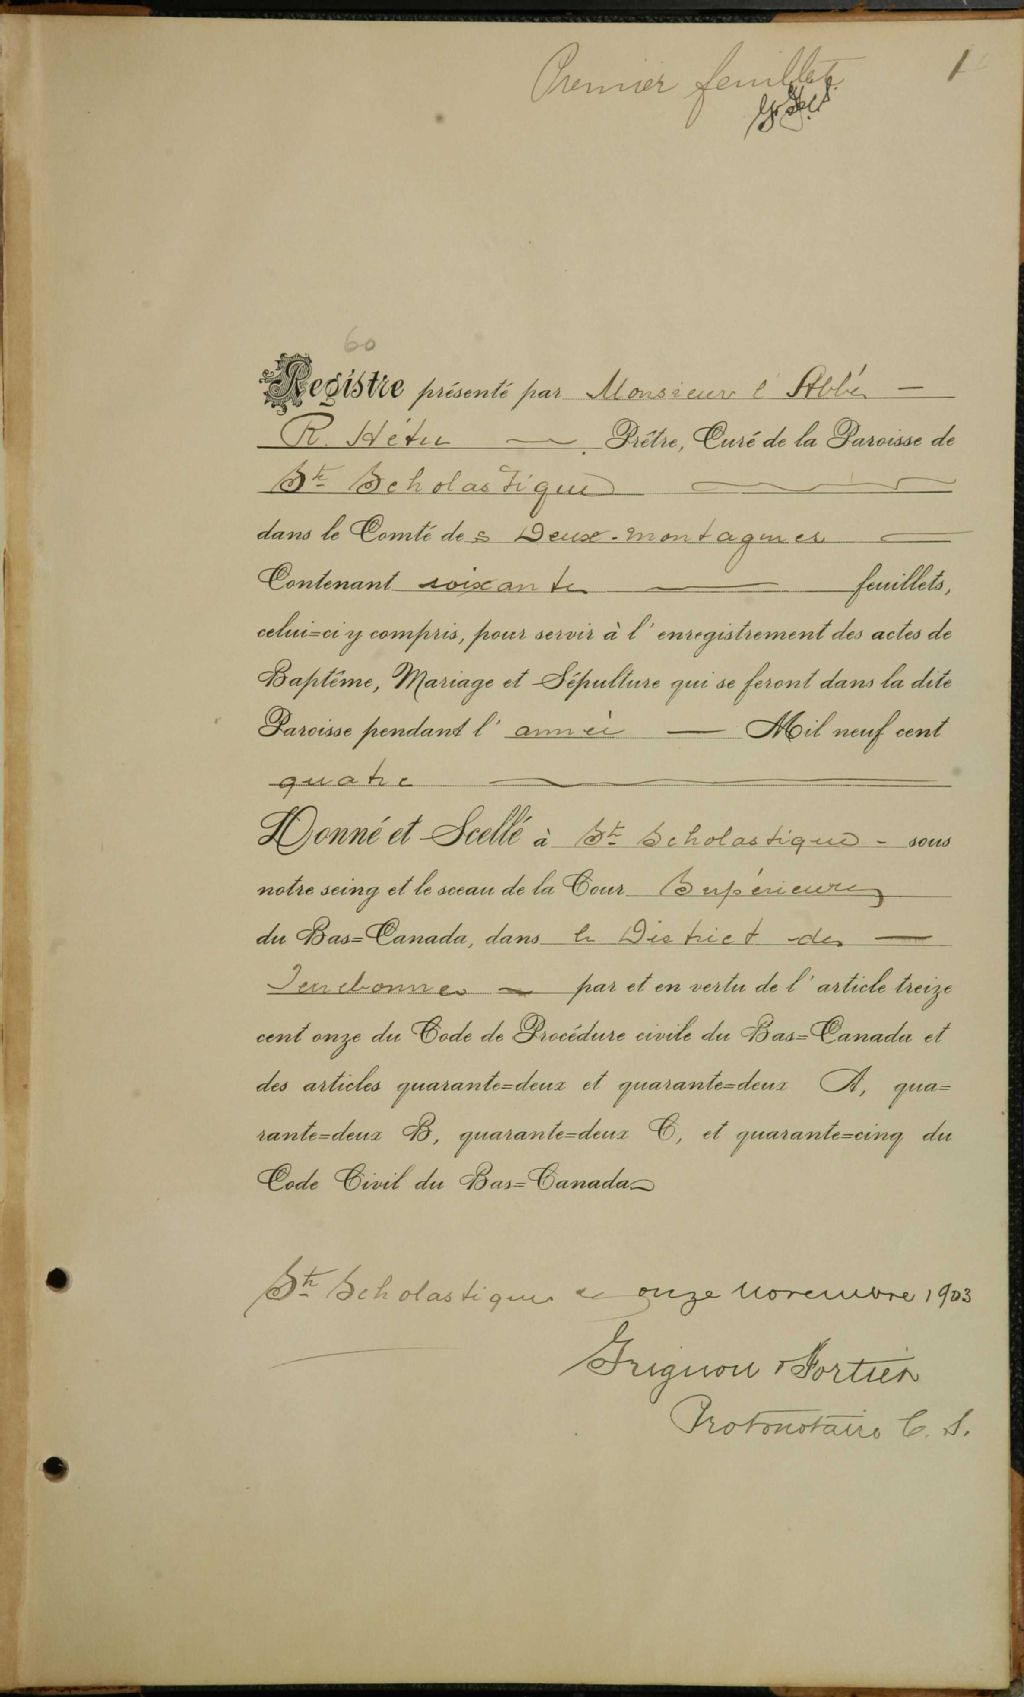 Premier feuillet
1
60
Registre présenté par Monsieur l'Abbé —
R. Hétu — Prêtre, Curé de la Paroisse de
Ste Scholastique
dans le Comté des Deux-montagnes
Contenant soixante — feuillets,
celui=ci y compris, pour servir à l'enregistrement des actes de
Baptême, Mariage et Sépulture qui se feront dans la dite
Paroisse pendant l'année — Mil neuf cent
quatre
Donné et Scellé à Ste Scholastique - sous
notre seing et le sceau de la Cour Supérieure
du Bas=Canada, dans le District de —
Terrebonne — par et en vertu de l'article treize
cent onze du Code de Procédure civile du Bas=Canada et
des articles quarante=deux et quarante=deux A, qua=
rante=deux B, quarante=deux C, et quarante=cinq du
Code Civil du Bas=Canada
Ste Scholastique onze novembre 1903
Grignon & Fortier
Protonotaire C. S.